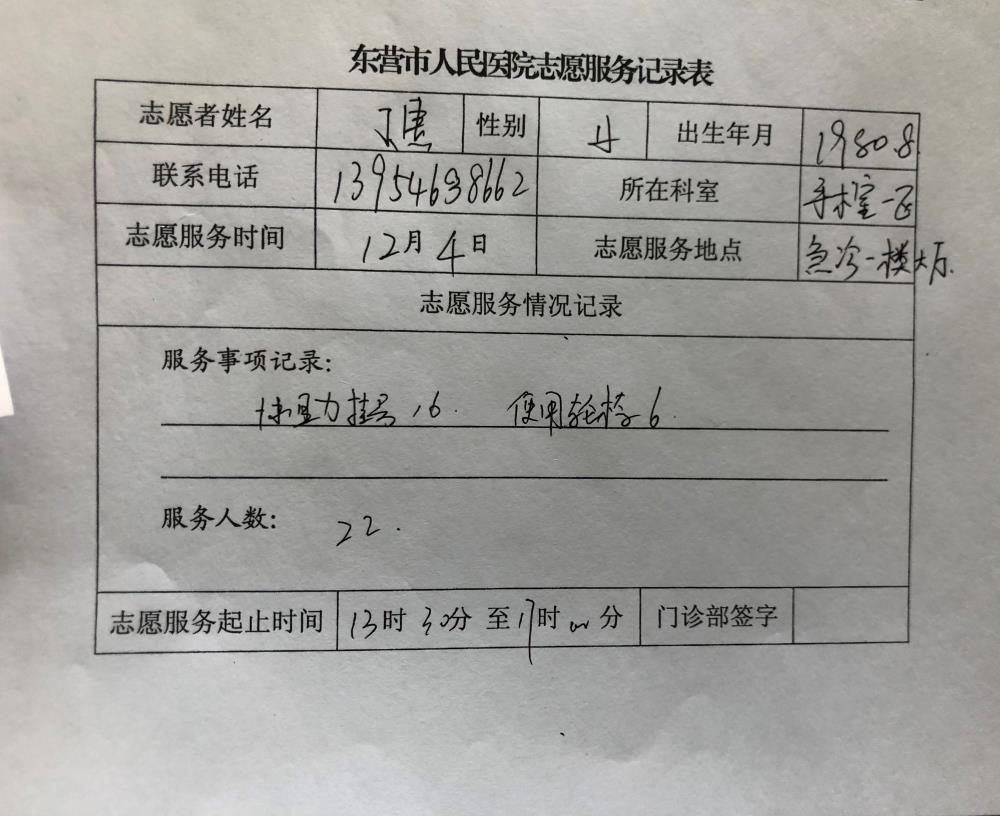 东营市人民医院志愿服务记录表
志愿者姓名 丁惠 性别 女 出生年月 1980.8.
联系电话 13954638662 所在科室 手术室一区
志愿服务时间 12月4日 志愿服务地点 急诊一楼大厅.
志愿服务情况记录
服务事项记录:
协助挂号16. 使用轮椅6.
服务人数: 22.
志愿服务起止时间 13时30分至17时00分 门诊部签字